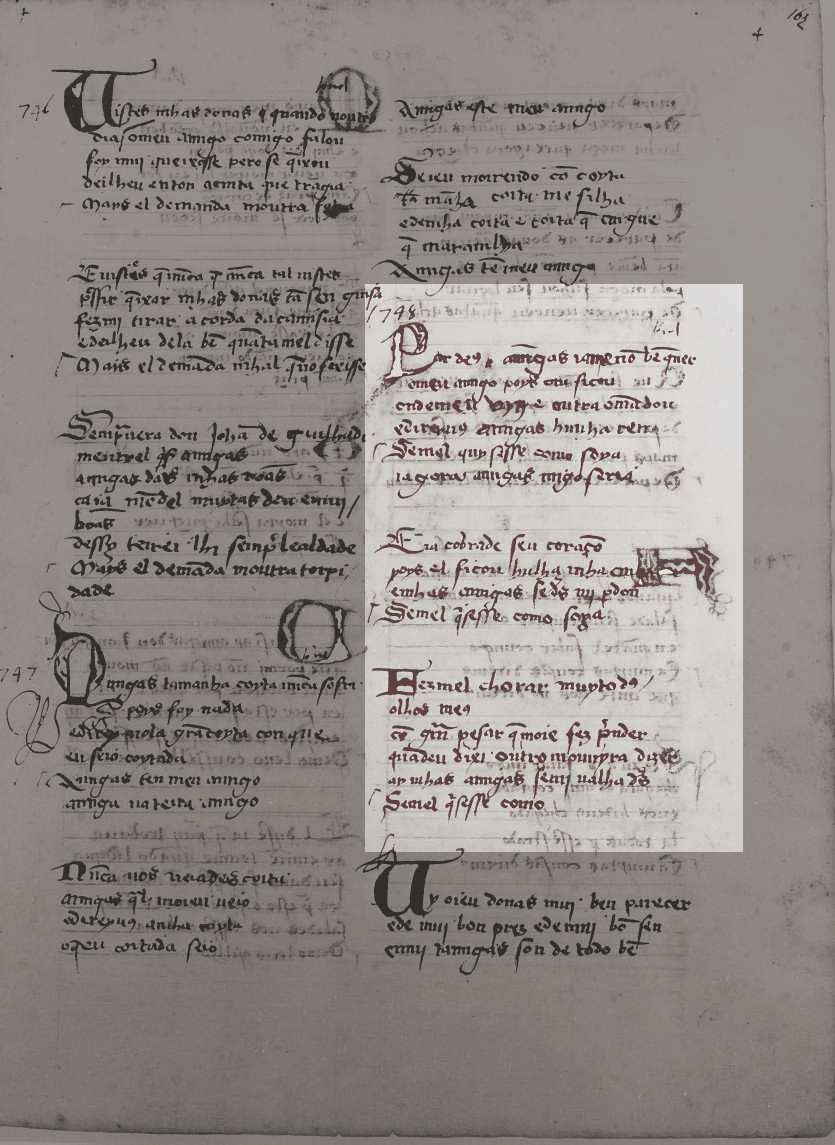 746
Vistes mhas donas q̄ quando noutro
dia omeu amigo comigo falou
foy mui queixosse pero se q̄ixou
deilheu enton acinta que tragia
Mays el demanda moutra
E uistes q̄ nūca q̄ nūca tal uistes
guisa
fezmi tirar a corda da camisa
e deilheu dela bē quāta mel disse
Mais el demāda mhal
Semp̄uera don Johā de guilhade
mentrel q̄ amigas
amigas das mhas doas
ca ia mēdel muytas deu e mui
boas
dessy terrei lhi semp̄ lealdade
Mays el demāda moutra torpi
dade
747
Amigas tamanha coyta nūca sofri
poys foy nada
e direyuola grā coyta con que
eu seio coytada
Amigas ten meu amigo
amiga na terra amigo
Nūca uos ueiades coyta
amigas q̄l moieu ueio
e direyu9 a mha coyta
o q̄eu coitada seio
162
Amigas este meu amigo
Seieu morrendo cō coyta
tā māha coita me filha
e demha coita e coita q̄
q̄ marauilha
Amigas tē meu amigo
748
Par de9 amigas ia me nō bē quer
o meu amigo poys ora ficou
onde meu e outra o mādou
e direyu9 amigas hunha ren
Semel quysesse como soya
ia gora amigas migo seria
E ia cobrade seu coraçō
poys el ficou hu lha mha
e mhas amigas se ds̄ mi p̄don
Semel q̄sesse como soya
Fezmel chorar muyto d9
olhos me9
cō grā pesar q̄ moie fez p̄nder
quādeu dixi outro mouuyra dizer
ay mhas amigas se mi ualha ds̄
Semel q̄sesse como
Uy oieu donas mui ben parecer
e de mui bon prez e de mui bō sen
e mui tamigas son de todo bē